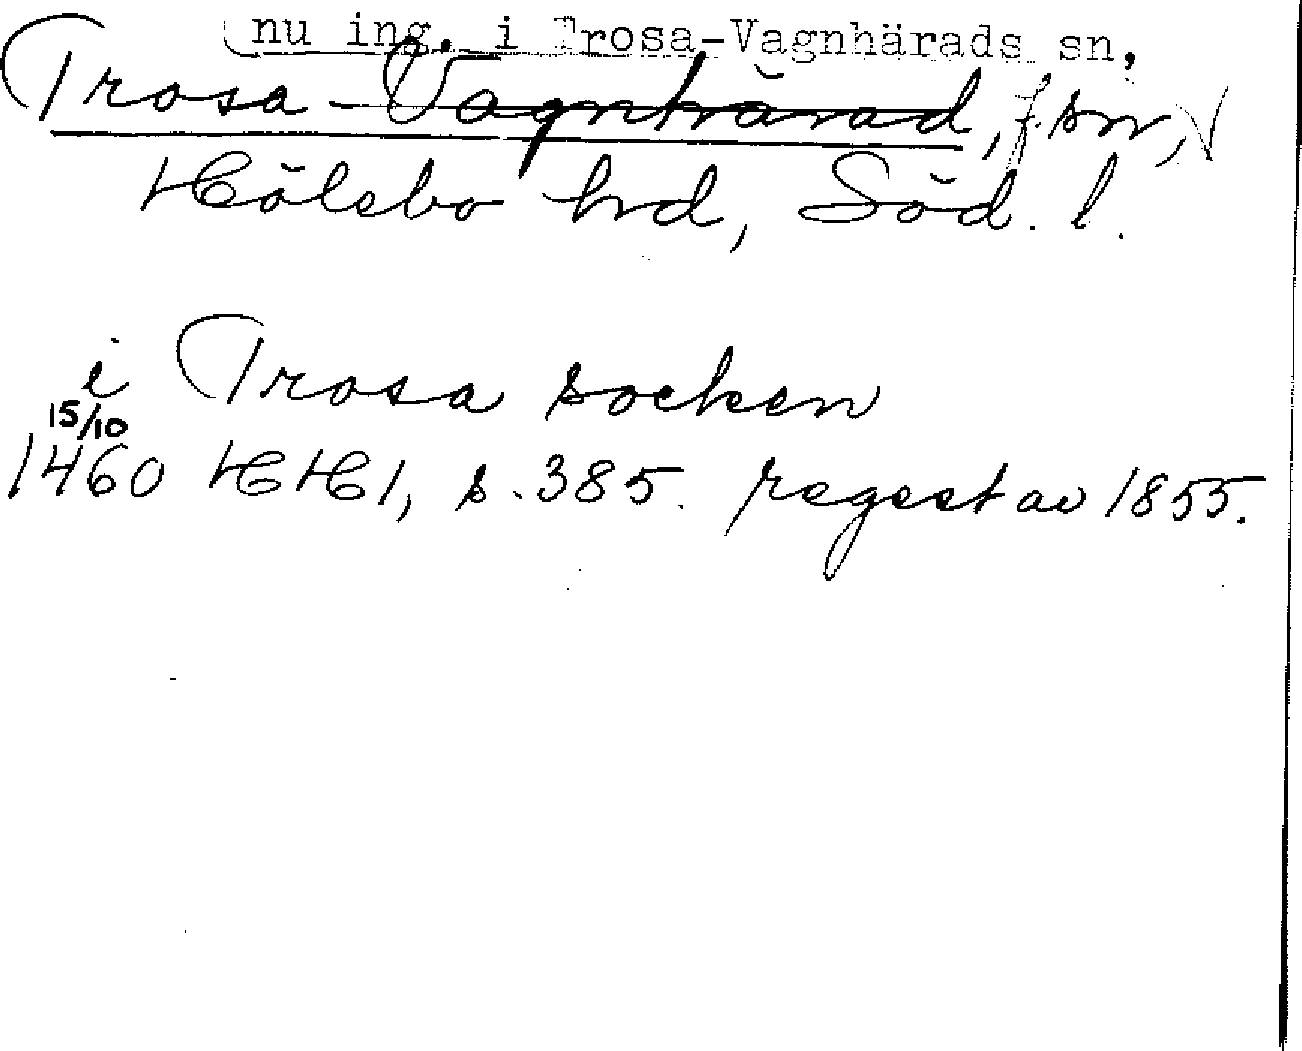 nu ing. i Trosa-Vagnhärads sn,
Trosa-Vagnhärad, f. sn,
Hölebo hd, Söd. l.
i Trosa socken
15/10
1460 HH1, s. 385. regest av 1855.